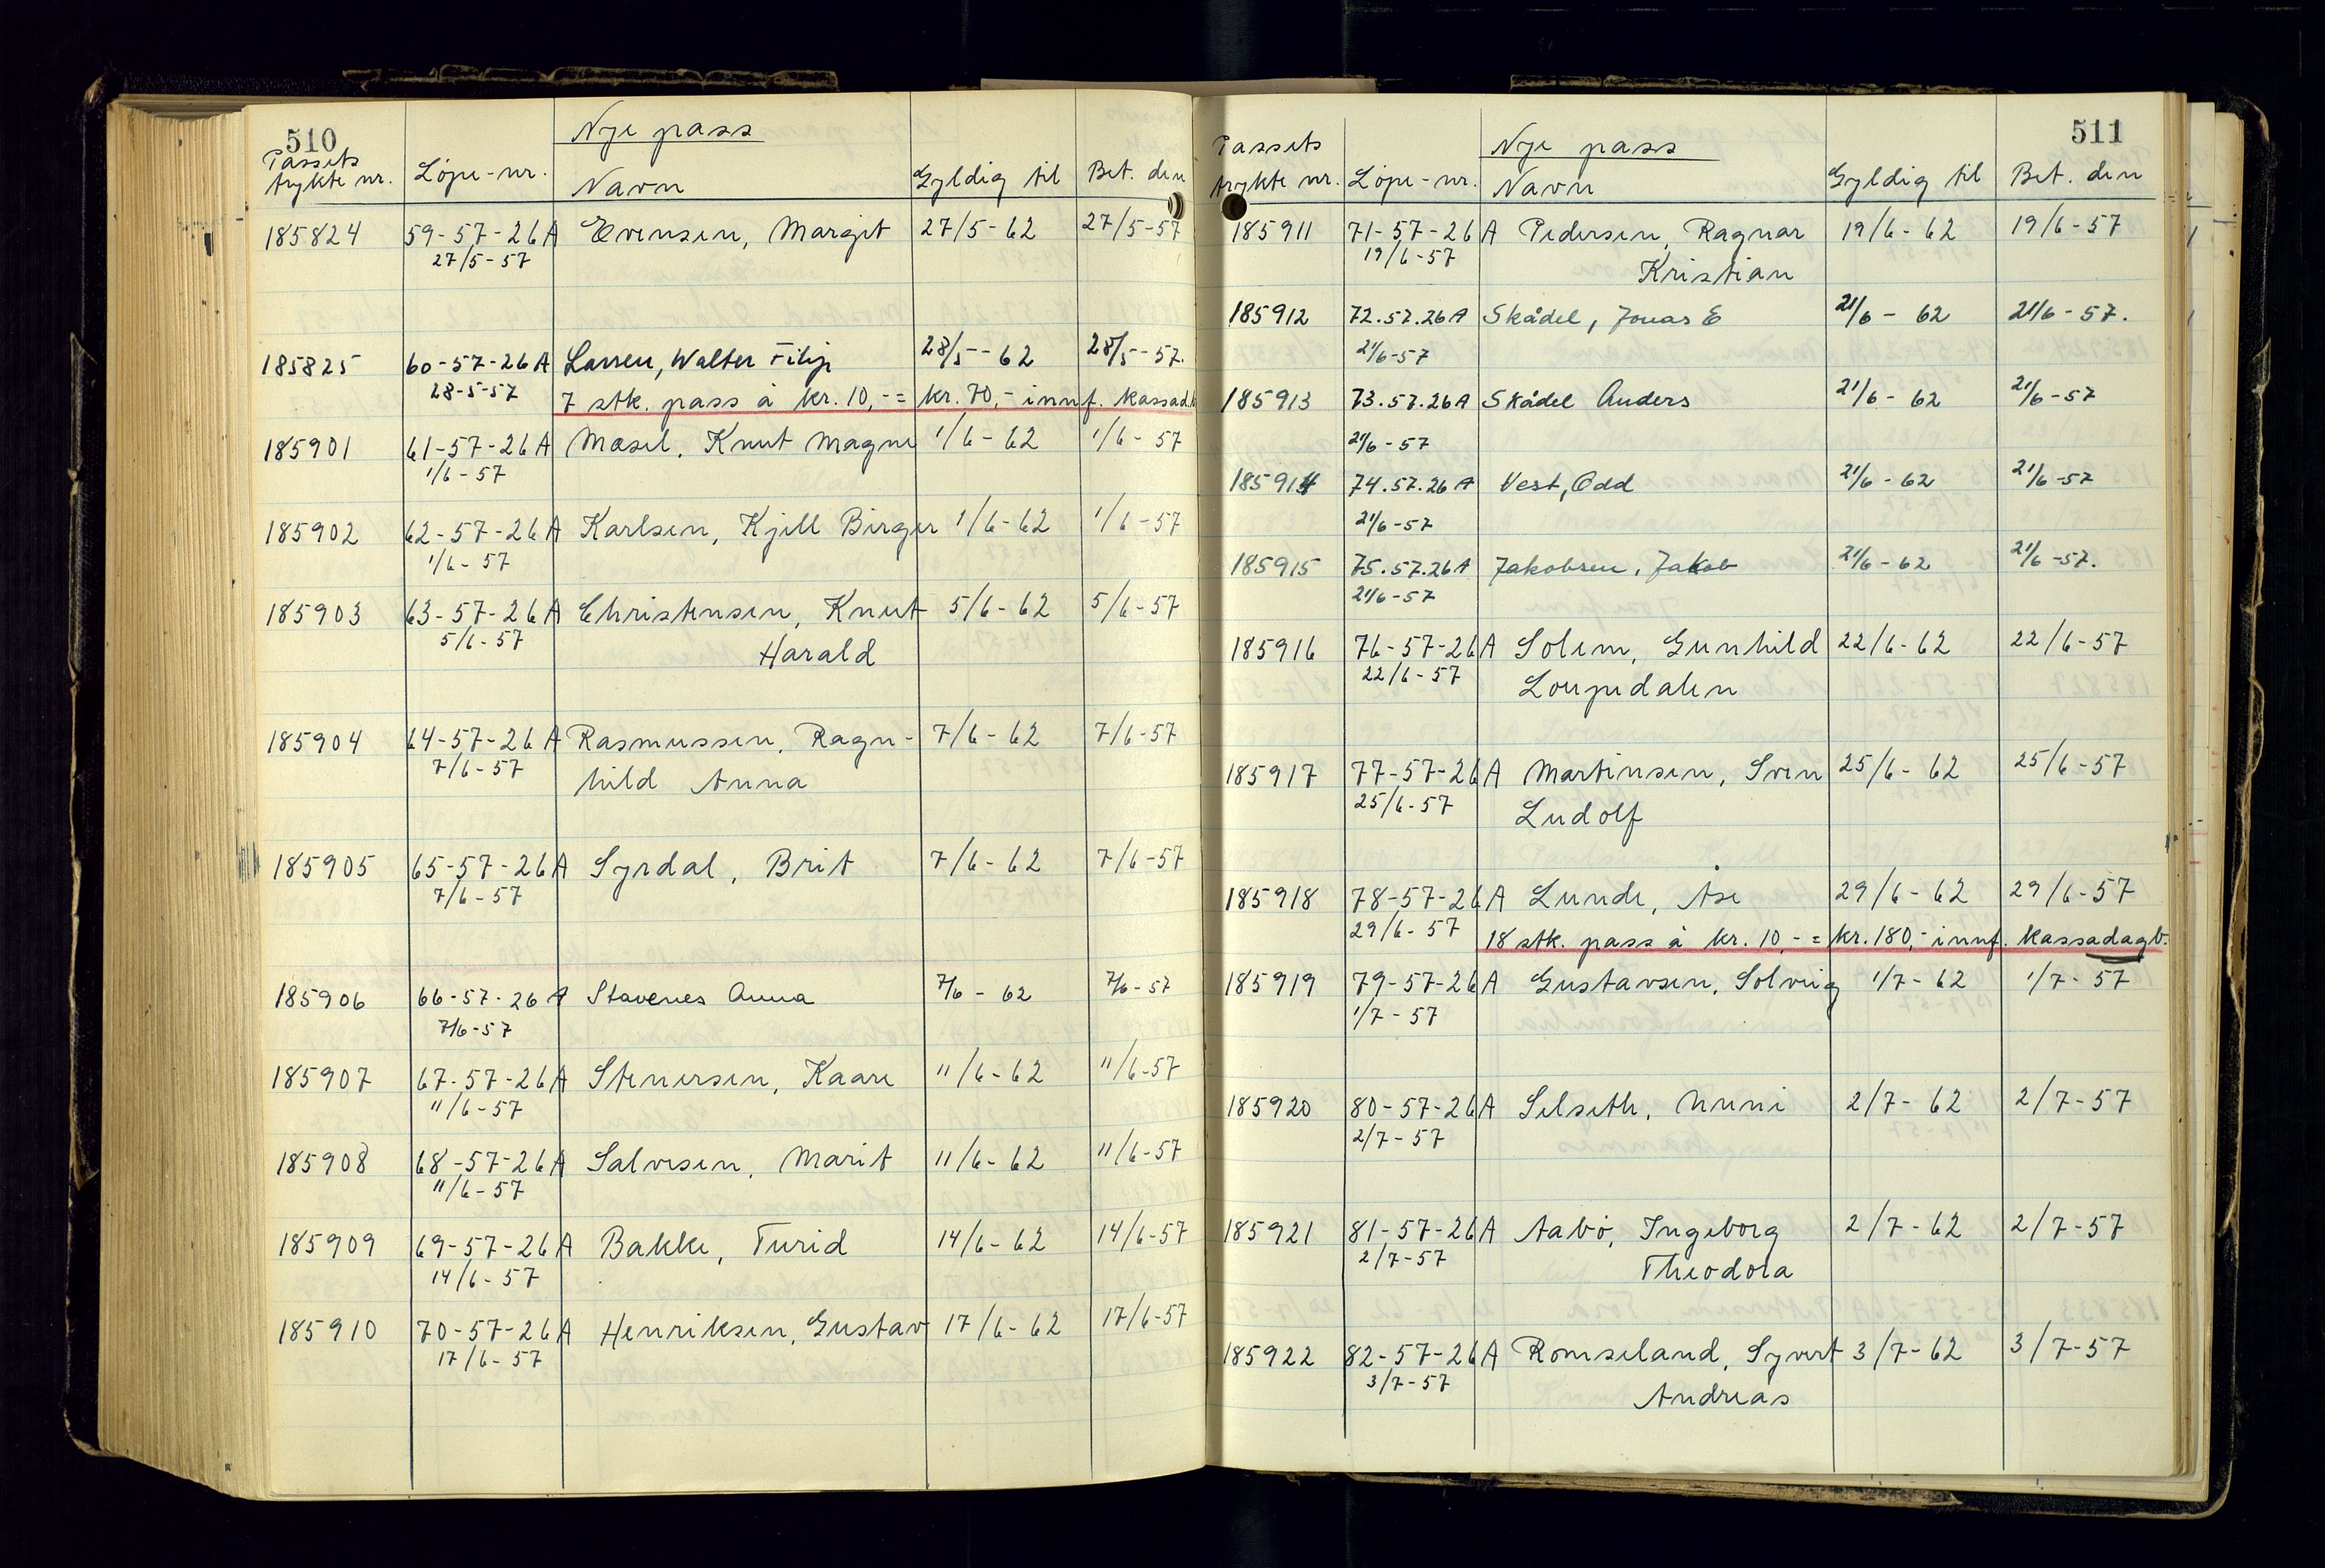 510
Nye pass
Passets
trykte nr. Løpe-nr. Navn Gyldig til Bet. den
185824 59-57-26A Evensen, Margit 27/5-62 27/5-57
27/5-57
185825 60-57-26A Larsen, Walter Filip 28/5-62 28/5-57.
28-5-57 7 stk. pass à kr. 10,- = kr. 70,- innf. kassadb
185901 61-57-26A Mæsel, Knut Magne 1/6-62 1/6-57
1/6-57
185902 62-57-26A Karlsen, Kjell Birger 1/6-62 1/6-57
1/6-57
185903 63-57-26A Christensen, Knut 5/6-62 5/6-57
5/6-57 Harald
185904 64-57-26A Rasmussen, Ragn- 7/6-62 7/6-57
7/6-57 hild Anna
185905 65-57-26A Syrdal, Brit 7/6-62 7/6-57
7/6-57
185906 66-57-26A Stavenes Anna 7/6-62 7/6-57
7/6-57
185907 67-57-26A Stenersen, Kaare 11/6-62 11/6-57
11/6-57
185908 68-57-26A Salvesen, Marit 11/6-62 11/6-57
11/6-57
185909 69-57-26A Bakke, Turid 14/6-62 14/6-57
14/6-57
185910 70-57-26A Henriksen, Gustav 17/6-62 17/6-57
17/6-57
511
Nye pass
Passets
trykte nr. Løpe-nr. Navn Gyldig til Bet. den
185911 71-57-26A Pedersen, Ragnar 19/6-62 19/6-57
19/6-57 Kristian
185912 72.57.26A Skådel, Jonas E 21/6-62 21/6-57.
21/6-57
185913 73.57.26A Skådel Anders 21/6-62 21/6-57
21/6-57
185914 74.57.26A Vest, Odd 21/6-62 21/6-57
21/6-57
185915 75.57.26A Jakobsen, Jakob 21/6-62 21/6-57.
21/6-57
185916 76-57-26A Solem, Gunhild 22/6-62 22/6-57
22/6-57 Loupedalen
185917 77-57-26A Martinsen, Sven 25/6-62 25/6-57
25/6-57 Ludolf
185918 78-57-26A Lunde, Åse 29/6-62 29/6-57
29/6-57 18 stk. pass à kr. 10,- = kr. 180,- innf. kassadagb.
185919 79-57-26A Gustavsen, Solveig 1/7-62 1/7-57
1/7-57
185920 80-57-26A Selseth, Nunni 2/7-62 2/7-57
2/7-57
185921 81-57-26A Aabø, Ingeborg 2/7-62 2/7-57
2/7-57 Theodora
185922 82-57-26A Romseland, Syvert 3/7-62 3/7-57
3/7-57 Andreas